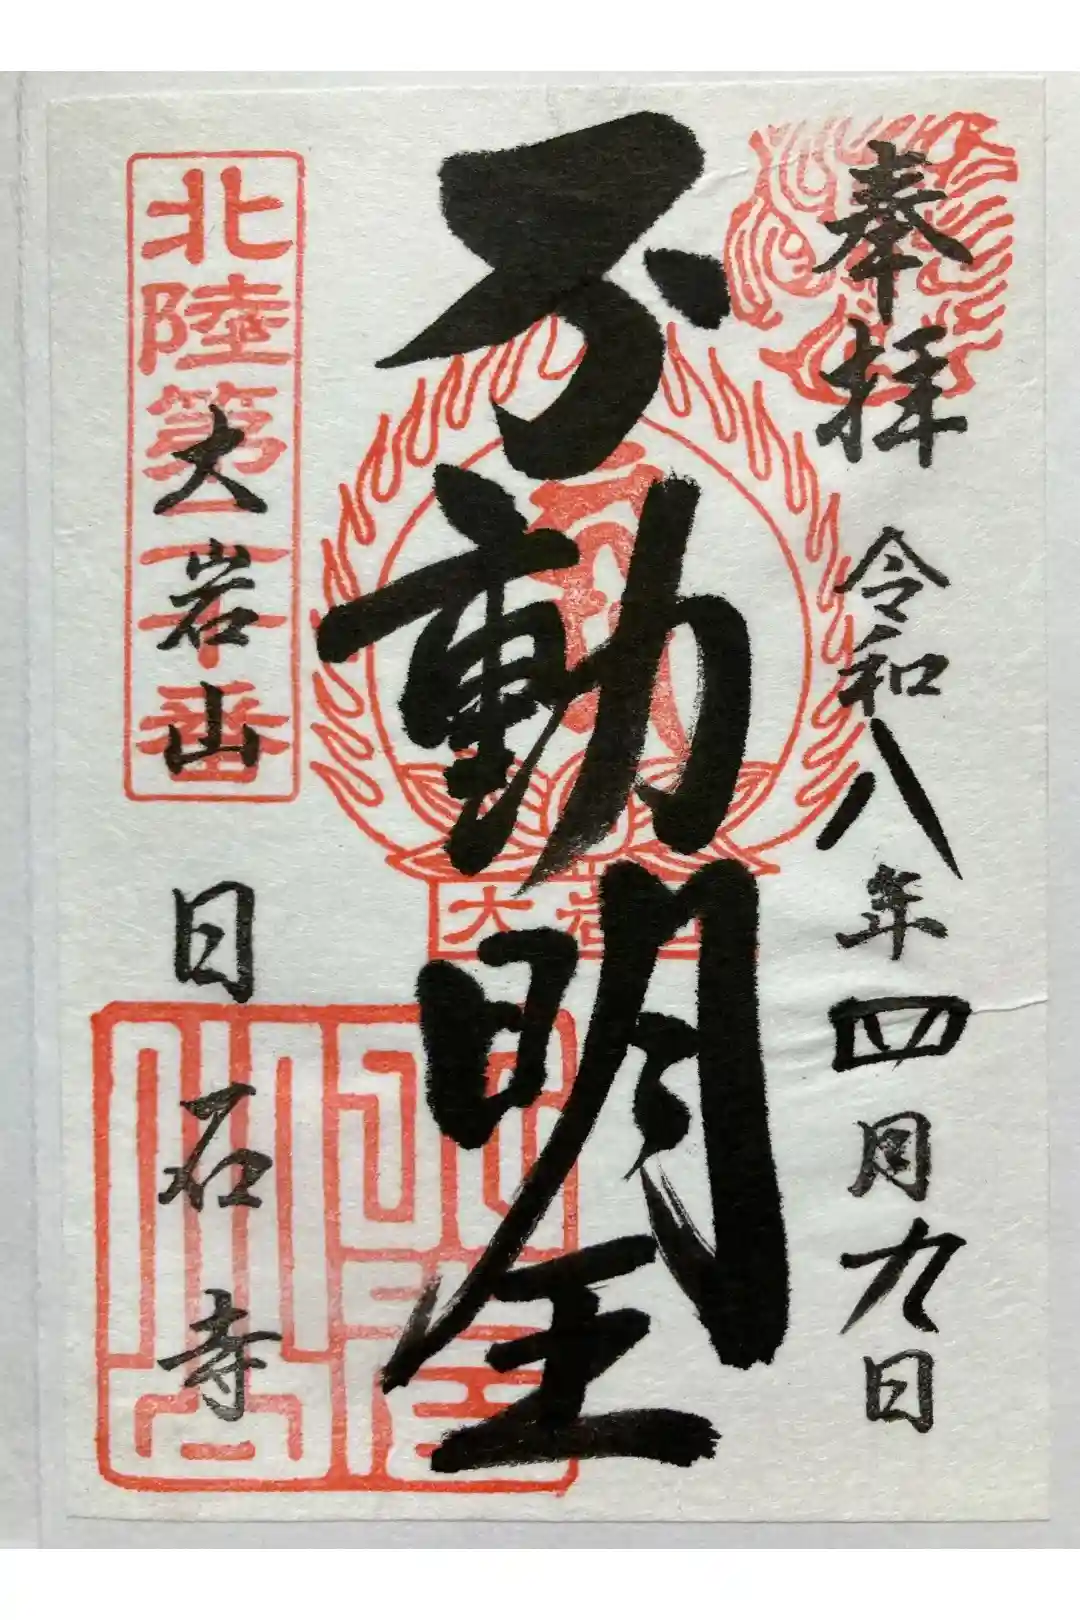 奉拝 令和八年四月九日
不動明王
大岩山 日石寺
北陸第二十番
大岩山